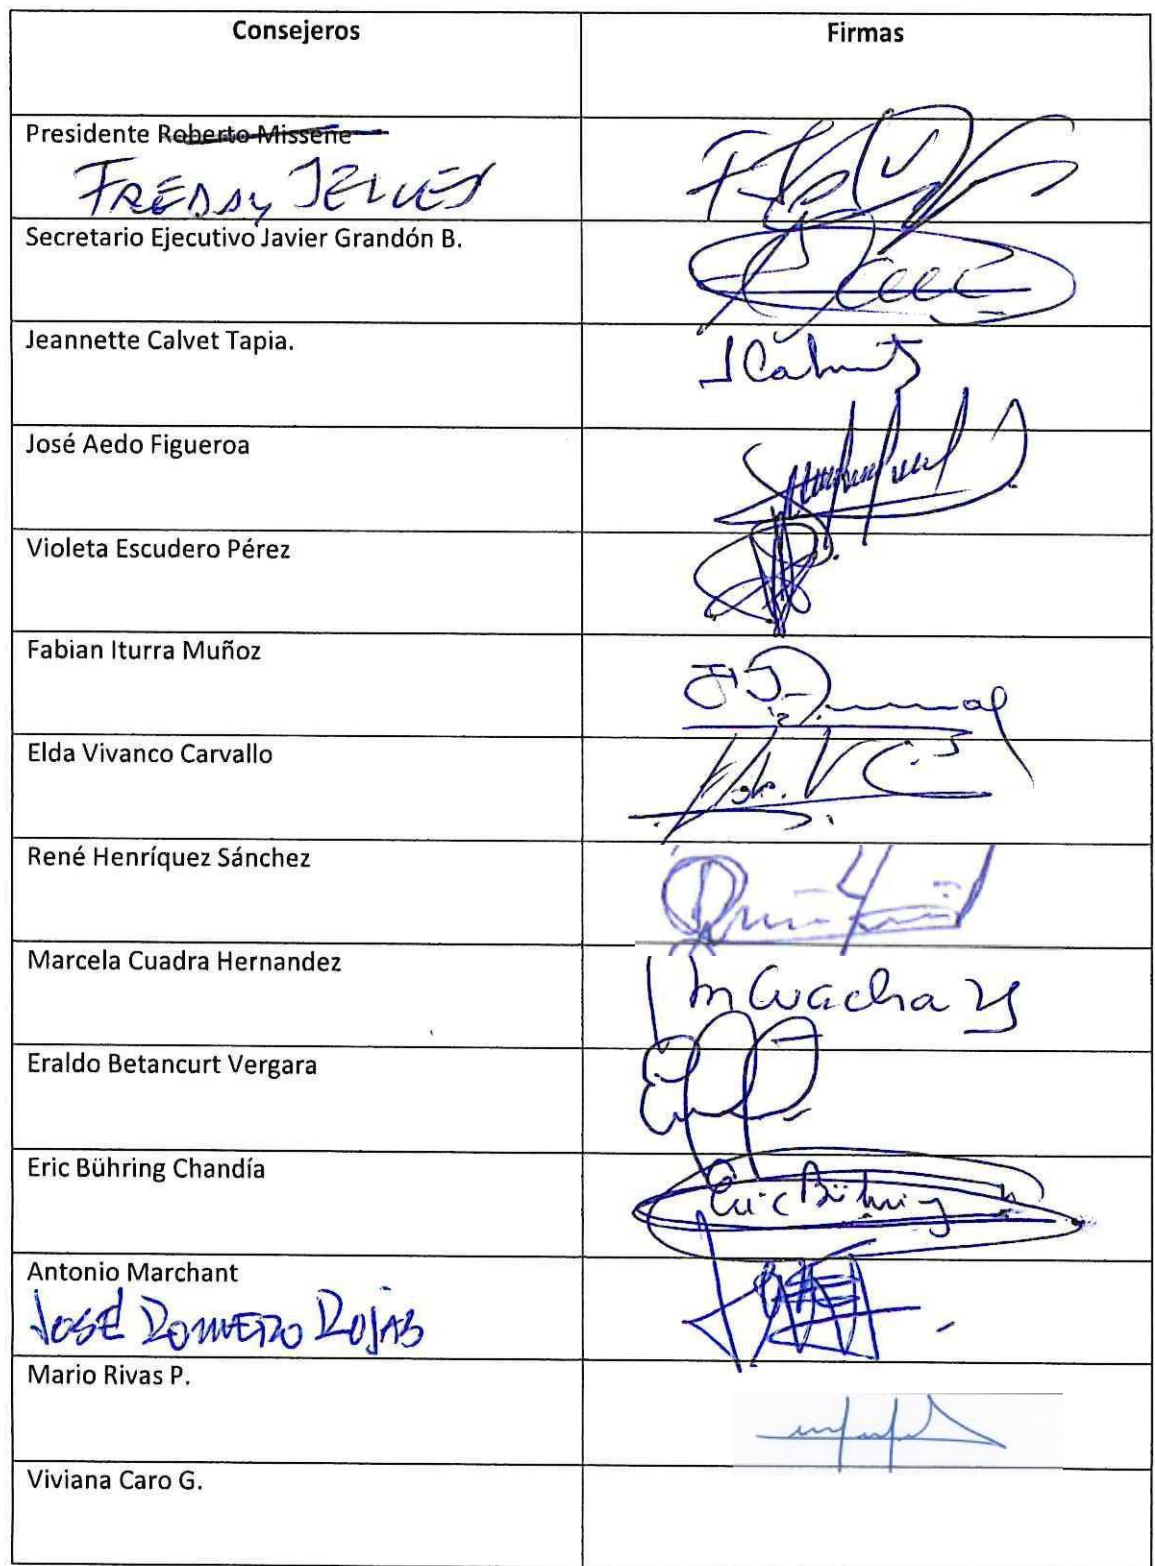 Consejeros Firmas
Presidente Roberto Missene
FREDDY JELVES
Secretario Ejecutivo Javier Grandón B.
Jeannette Calvet Tapia.
José Aedo Figueroa
Violeta Escudero Pérez
Fabian Iturra Muñoz
Elda Vivanco Carvallo
René Henríquez Sánchez
Marcela Cuadra Hernandez
Eraldo Betancurt Vergara
Eric Bühring Chandía
Eric Bühring
Antonio Marchant
JOSÉ ROMERO ROJAS
Mario Rivas P.
Viviana Caro G.